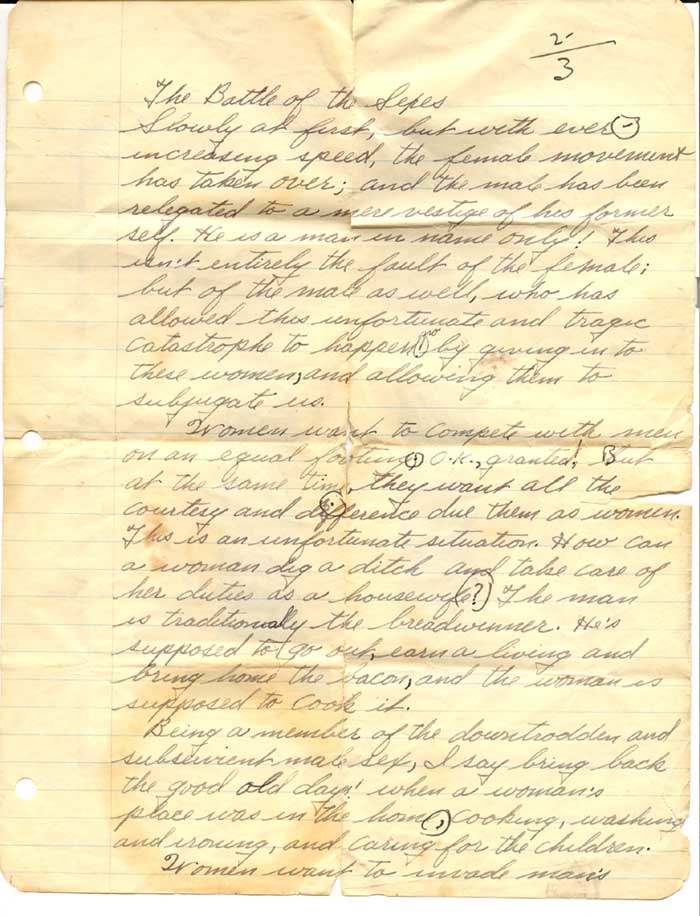 2-
3
The Battle of the Sexes
Slowly at first, but with ever-
increasing speed, the female movement
has taken over; and the male has been
relegated to a mere vestige of his former
self. He is a man in name only! This
isn't entirely the fault of the female;
but of the male as well, who has
allowed this unfortunate and tragic
catastrophe to happen, by giving in to
these women, and allowing them to
subjugate us.
Women want to compete with men
on an equal footing. O.K., granted! But
at the same time, they want all the
courtesy and deference due them as women.
This is an unfortunate situation. How can
a woman dig a ditch and take care of
her duties as a housewife? The man
is traditionally the breadwinner. He's
supposed to go out, earn a living and
bring home the bacon, and the woman is
supposed to cook it.
Being a member of the downtrodden and
subservient male sex, I say bring back
the good old days! when a woman's
place was in the home, cooking, washing
and ironing, and caring for the children.
Women want to invade man's